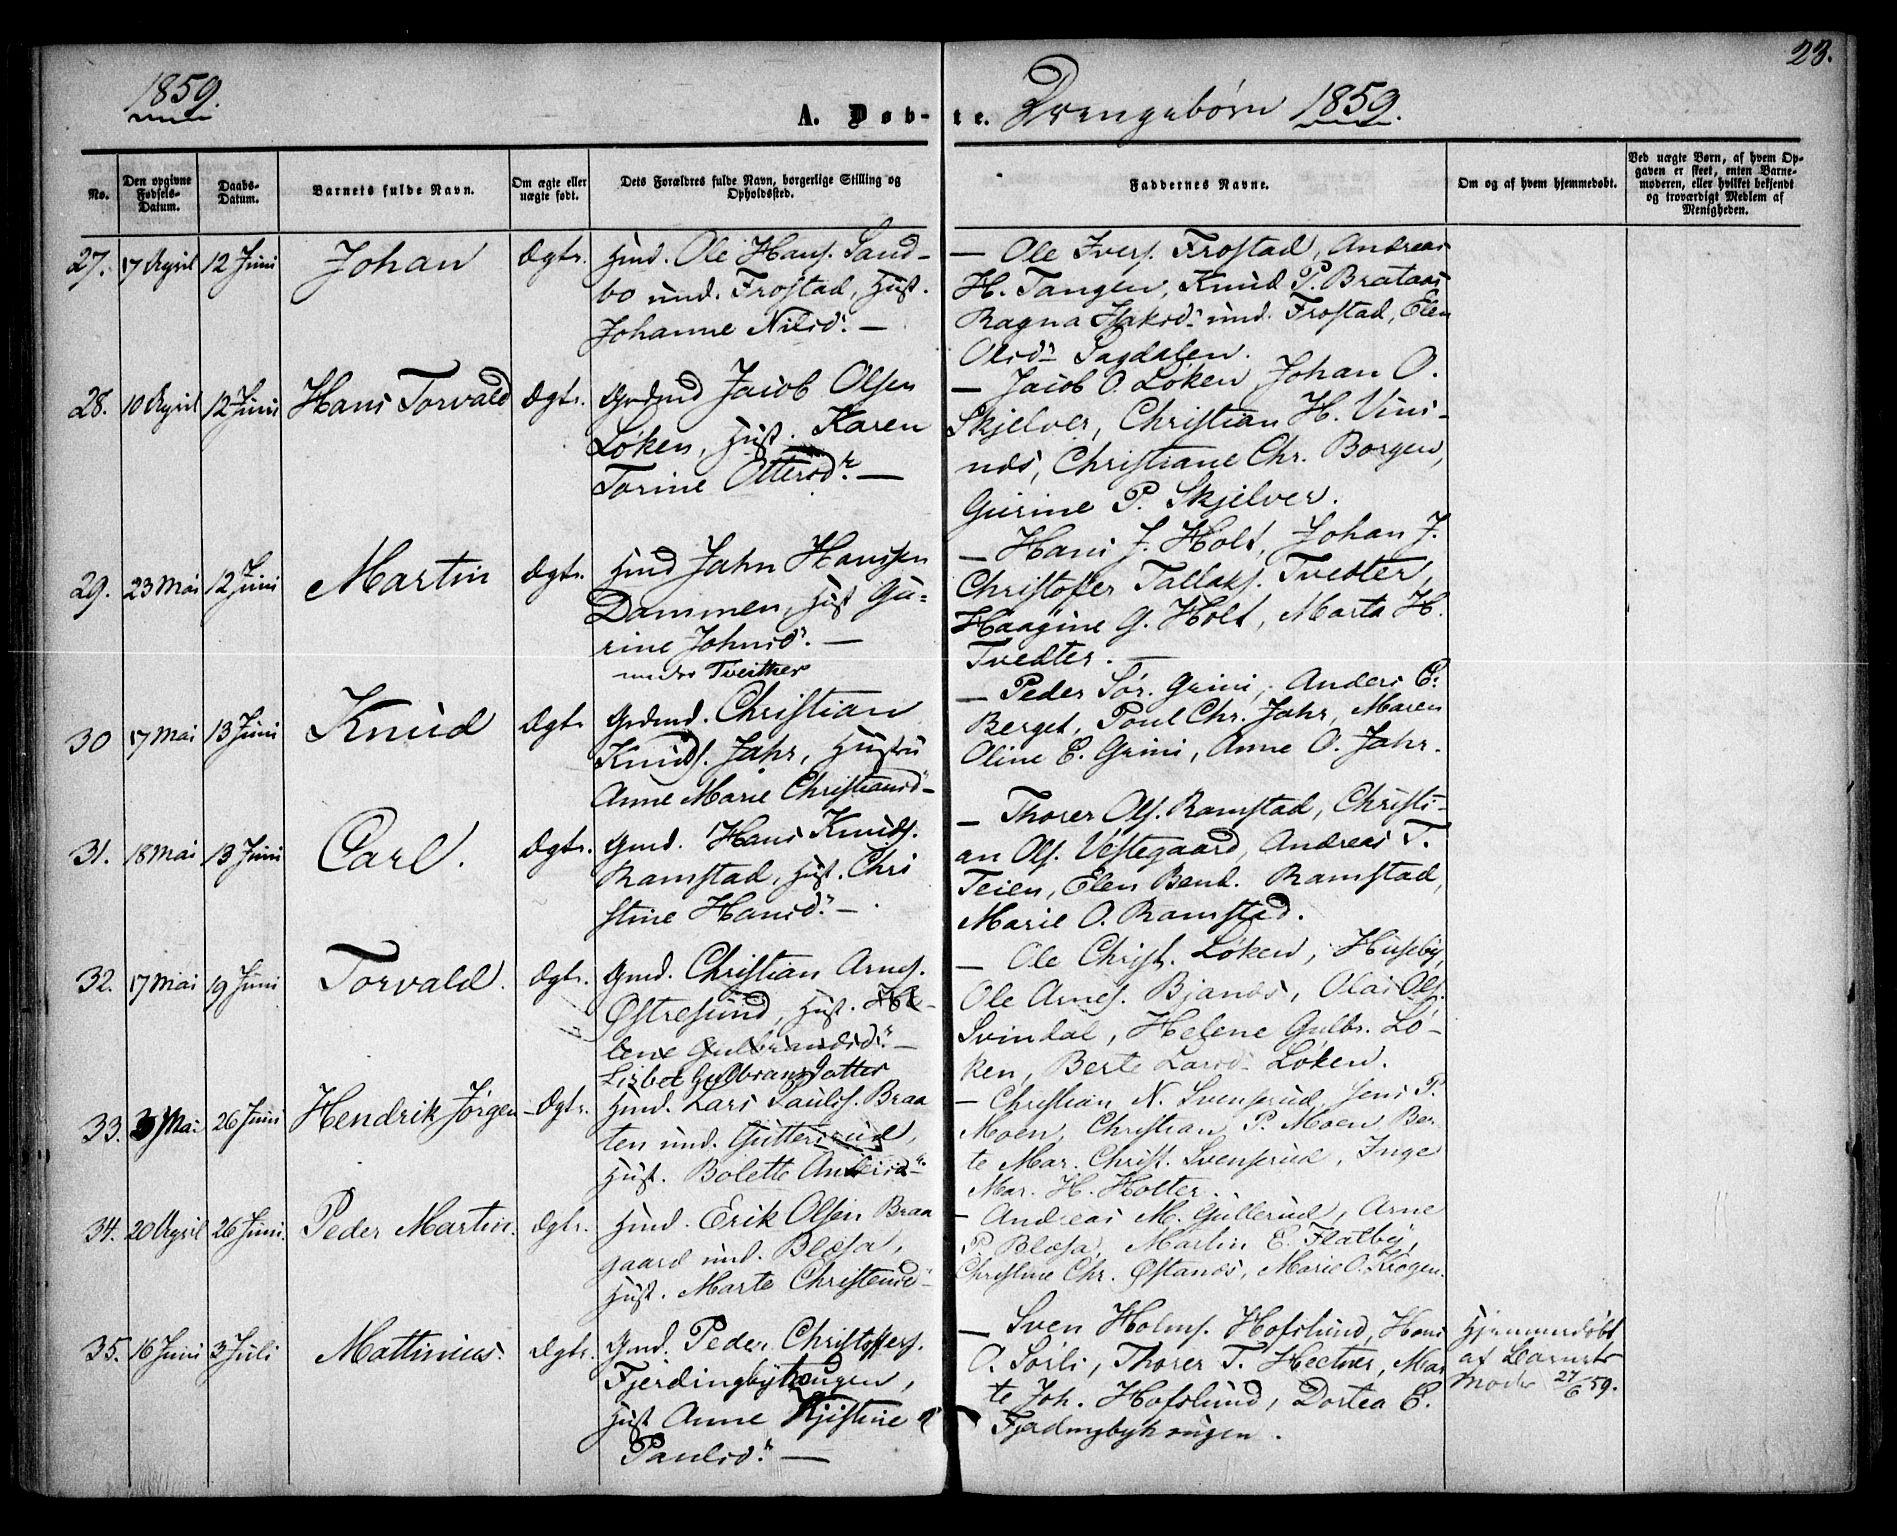 23.
1859.
A. Døb-
te. Drengebørn 1859.
No.
Den opgivne Fødsels-Datum.
Daabs-Datum.
Barnets fulde Navn.
Om ægte eller uægte født.
Dets Forældres fulde Navn, borgerlige Stilling og Opholdssted.
Faddernes Navne.
Om og af hvem hjemmedøbt.
Ved uægte Børn, af hvem Op-
gaven er skeet, enten Barne-
moderen, eller hvilket bekjendt
og troværdigt Medlem af
Menigheden.
27. 17 April 12 Juni Johan Ægte. Hmd. Ole Hans. Sand-
bo und. Frostad, Hust.
Johanne Nilsdr. —
— Ole Ivers. Frostad, Andreas
H. Tangen, Knud P. Brataas
Ragna Isaksdr. und. Frostad, Elen
Olsdr. Sagdalen.
28. 10 April 12 Juni Hans Torvald Ægte. Grdmd Jacob Olsen
Løken, Hust. Karen
Torine Ottersdr. —
— Jacob O. Løken, Johan O.
Skjelver, Christian H. Vins-
næs, Christiane Chr. Borgen,
Gurine P. Skjelver.
29. 23 Mai 12 Juni Martin Ægte. Hmd Jahn Hanssen
Dammen, Hust Gu-
rine Johnsdr. —
under Tveither
— Hans J. Holt, Johan J.
Christoffer Tallaks. Tvedter,
Haagine G. Holt, Marta H.
Tvedter. —
30 17 Mai 13 Juni Knud Ægte Grdmd. Christian
Knuds. Jahr, Hustru
Anne Marie Christiansdr.
— Peder Sør. Grini, Anders E.
Berget, Poul Chr. Jahr, Maren
Oline E. Grini, Anne O. Jahr.
31. 18 Mai 13 Juni Carl. Ægte. Gmd. Hans Knuds.
Ramstad, Hust. Chri
stine Hansdr. —
— Thorer Ols. Ramstad, Christi-
an Ols. Vestegaard, Andreas T.
Teien, Elen Bend. Ramstad,
Marie O. Ramstad.
32. 17 Mai 19 Juni Torvald. Ægte. Gmd. Christian Arnes.
Østresund, Hust. He-
lene Gulbrandsdr. —
Lisbet Gulbransdatter
— Ole Christ. Løken, Huseby,
Ole Arnes. Bjanæs, Olai Ols.
Svindal, Helene Gulbr. Lø-
ken, Berte Larsdr. Løken.
33. Mai 26 Juni Hendrik Jørgen Ægte. Hmd. Lars Paulss. Braa
ten und. Guttersrud,
Hust. Bolette Andersdr.
— Christian N. Svensrud, Jens P.
Moen, Christian P. Moen Ber-
te Mar. Christ. Svensrud, Inge
Mar. H. Holter.
34. 20 April 26 Juni. Peder Martin. Ægte. Hmd. Erik Olsen Braa
gaard und. Blæsa,
Hust. Marte Christensdr.
— Andreas M. Gullerud, Arne
P. Blæsa, Martin E. Flatby,
Christine Chr. Østanæs, Marie O. Krogen.
35. 16 Juni 3 Juli Mattinius. Ægte. Gmd. Peder Christoffers.
Fjerdingbyhaugen,
Hust Anne Kjistine
Paulsdr. —
— Sven Holms. Hofslund, Hans
O. Sørli, Thorer T. Hectner, Mar
te Joh. Hofslund, Dortea E.
Fjerdingbyhaugen.
Hjemmedøbt
af Barnets
Moder 27/6 59.